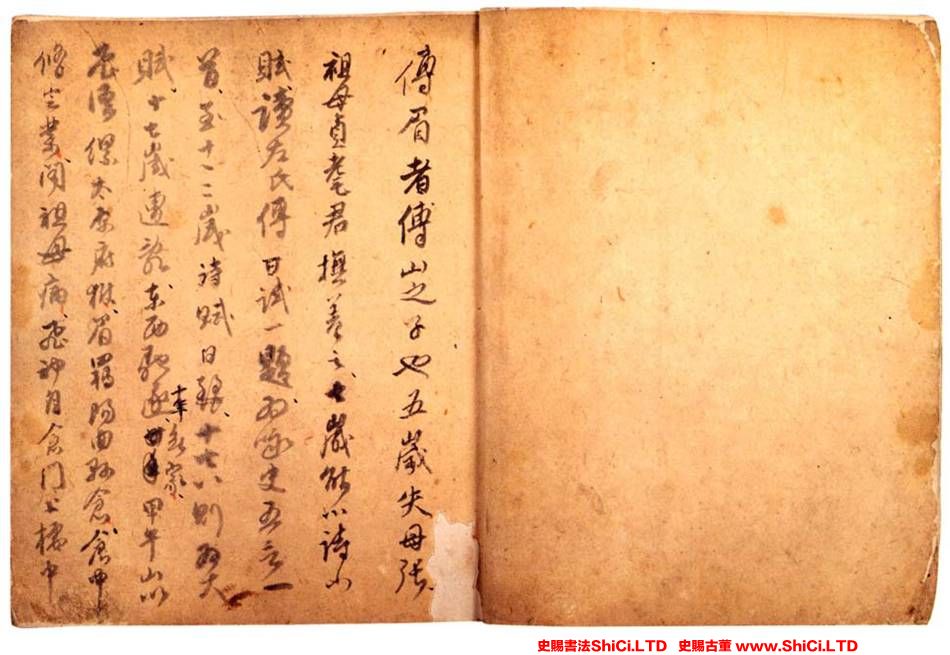 傅眉者傅山之子也五歲失母張
祖母貞耄君撫養之七歲能以詩小
賦讀左氏傳日試一題為詠史五言一
首至十一二歲詩賦日 十七八則為大
賦十七歲遭亂東西馳逐十年無家甲午山以
飛 太原府獄眉羈陽曲縣倉倉中
修 業聞祖母病 神 倉門上樓中
史賜書法ShiCi.LTD 史賜古董 www.ShiCi.LTD